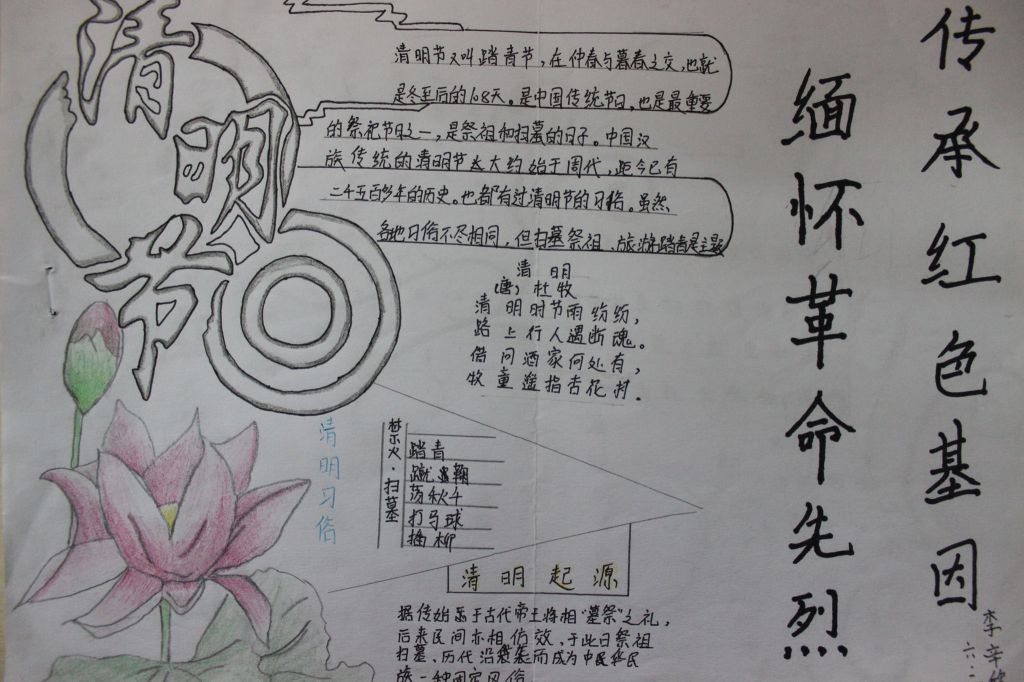 传承红色基因
缅怀革命先烈
清明节
清明节又叫踏青节，在仲春与暮春之交，也就
是冬至后的108天。是中国传统节日，也是最重要
的祭祀节日之一，是祭祖和扫墓的日子。中国汉
族传统的清明节大约始于周代，距今已有
二千五百多年的历史。也都有过清明节的习俗。虽然
各地习俗不尽相同，但扫墓祭祖、旅游踏青是主题
清明
（唐）杜牧
清明时节雨纷纷，
路上行人遇断魂。
借问酒家何处有，
牧童遥指杏花村.
清明习俗
禁火·扫墓
踏青
蹴鞠
荡秋千
打马球
插柳
清明起源
据传始于古代帝王将相“墓祭”之礼，
后来民间亦相仿效、于此日祭祖
扫墓、历代沿袭而成为中民华民
族一种固定风俗
李辛
六.二